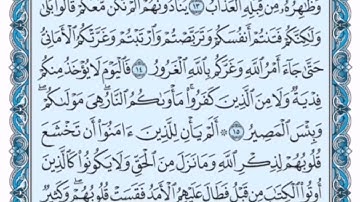 وَظَٰهِرُهُۥ مِن قِبَلِهِ ٱلْعَذَابُ ١٣ يُنَادُونَهُمْ أَلَمْ نَكُن مَّعَكُمْ قَالُوا۟ بَلَىٰ
وَلَٰكِنَّكُمْ فَتَنتُمْ أَنفُسَكُمْ وَتَرَبَّصْتُمْ وَٱرْتَبْتُمْ وَغَرَّتْكُمُ ٱلْأَمَانِىُّ
حَتَّىٰ جَآءَ أَمْرُ ٱللَّهِ وَغَرَّكُم بِٱللَّهِ ٱلْغَرُورُ ١٤ فَٱلْيَوْمَ لَا يُؤْخَذُ مِنكُمْ
فِدْيَةٌ وَلَا مِنَ ٱلَّذِينَ كَفَرُوا۟ مَأْوَىٰكُمُ ٱلنَّارُ هِىَ مَوْلَىٰكُمْ
وَبِئْسَ ٱلْمَصِيرُ ١٥ أَلَمْ يَأْنِ لِلَّذِينَ ءَامَنُوٓا۟ أَن تَخْشَعَ
قُلُوبُهُمْ لِذِكْرِ ٱللَّهِ وَمَا نَزَلَ مِنَ ٱلْحَقِّ وَلَا يَكُونُوا۟ كَٱلَّذِينَ
أُوتُوا۟ ٱلْكِتَٰبَ مِن قَبْلُ فَطَالَ عَلَيْهِمُ ٱلْأَمَدُ فَقَسَتْ قُلُوبُهُمْ وَكَثِيرٌ